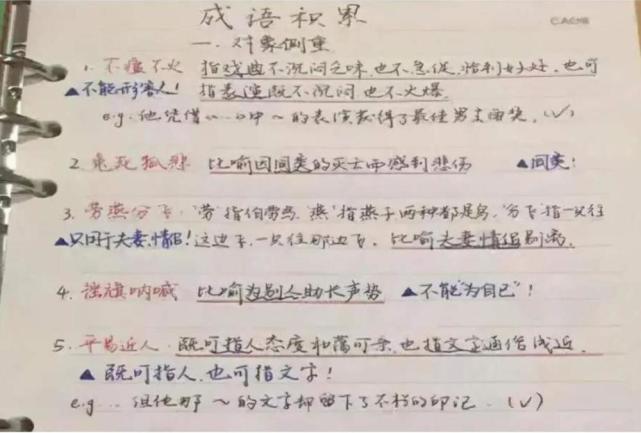 成语积累
一、对象侧重
1. 不瘟不火 指戏曲不沉闷乏味,也不急促,恰到好处,也可
▲不能形容人! 指表演既不沉闷也不火爆.
e.g. 他凭借《……》中~的表演获得了最佳男主角奖.(√)
2. 兔死狐悲 比喻因同类的灭亡而感到悲伤 ▲同类!
3. 劳燕分飞.“劳”指伯劳鸟,“燕”指燕子两种都是鸟,“分飞”指一只往
▲只用于夫妻、情侣! 这边飞,一只往那边飞. 比喻夫妻、情侣别离.
4. 摇旗呐喊 比喻为别人助长声势 ▲不能“为自己”!
5. 平易近人. 既可指人态度和蔼可亲,也指文字通俗浅近.
▲ 既可指人,也可指文字!
e.g. ... 但他那~的文字却留下了不朽的印记.(√)